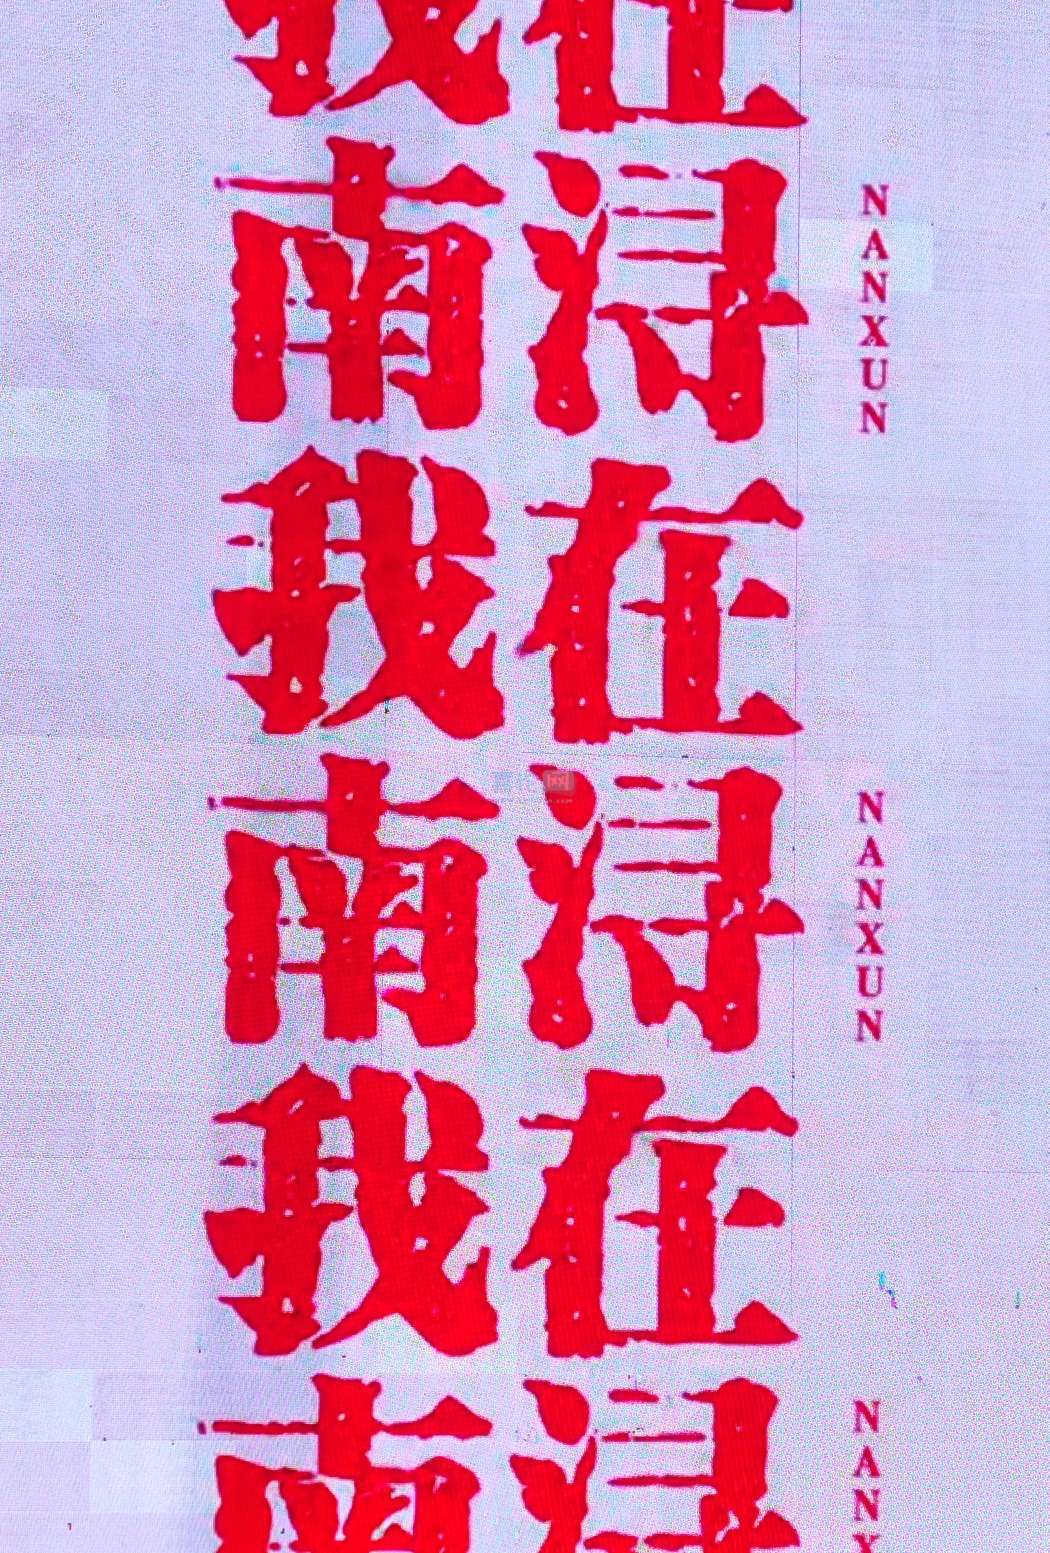 我在
南浔
NANXUN
我在
南浔
NANXUN
我在
南浔
NANX